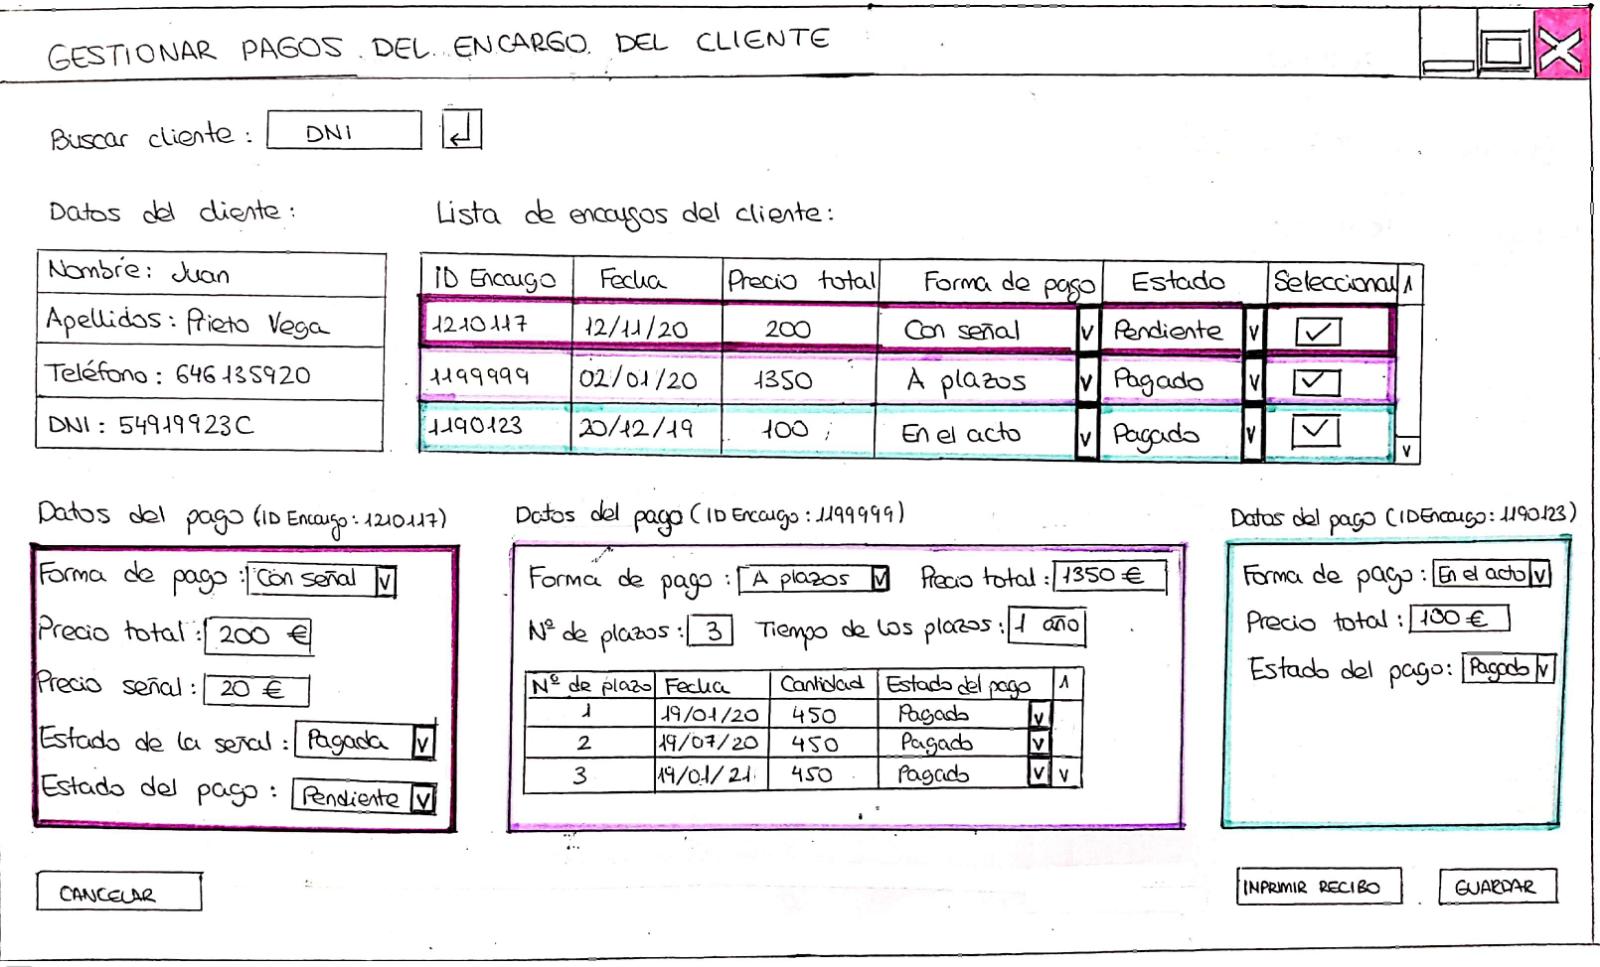 GESTIONAR PAGOS DEL ENCARGO DEL CLIENTE
Buscar cliente: DNI
Datos del cliente:
Lista de encargos del cliente:
Nombre: Juan
Apellidos: Prieto Vega
Teléfono: 646135920
DNI: 54919923C
ID Encargo Fecha Precio total Forma de pago Estado Seleccionar
1210117 12/11/20 200 Con señal v Pendiente v
1199999 02/01/20 1350 A plazos v Pagado v
1190123 20/12/19 100 En el acto v Pagado v
v
Datos del pago (ID Encargo: 1210117)
Forma de pago: Con señal v
Precio total: 200 €
Precio señal: 20 €
Estado de la señal: Pagada v
Estado del pago: Pendiente v
Datos del pago (ID Encargo: 1199999)
Forma de pago: A plazos v Precio total: 1350 €
Nº de plazos: 3 Tiempo de los plazos: 1 año
Nº de plazo Fecha Cantidad Estado del pago
1 19/01/20 450 Pagado v
2 19/07/20 450 Pagado v
3 19/01/21 450 Pagado v v
Datos del pago (ID Encargo: 1190123)
Forma de pago: En el acto v
Precio total: 100 €
Estado del pago: Pagado v
CANCELAR
INPRIMIR RECIBO
GUARDAR